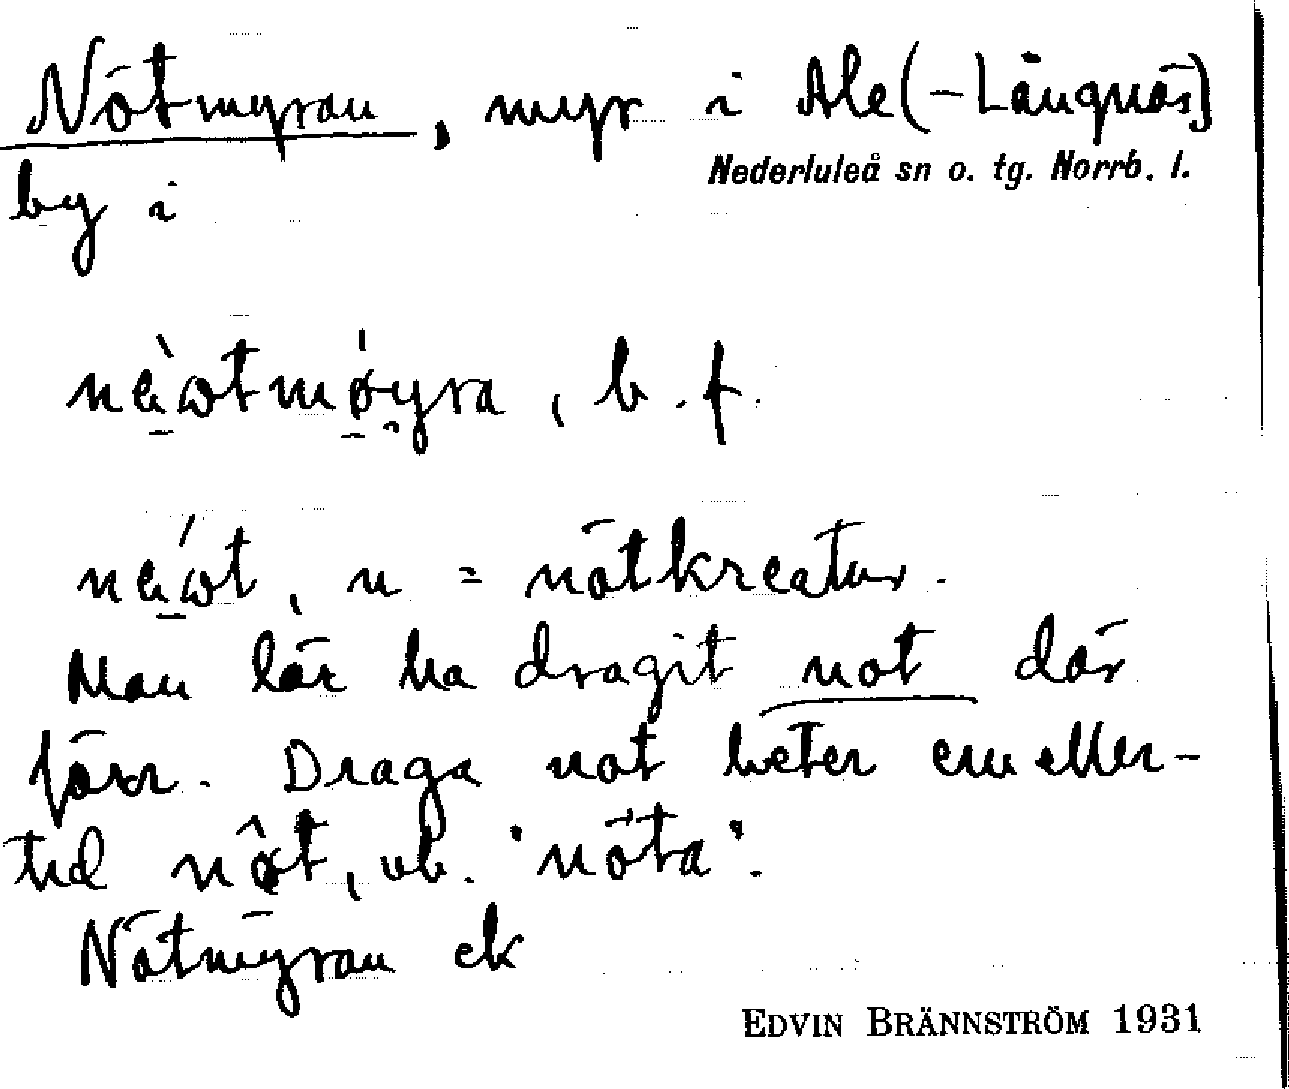 Nötmyran, myr i Ale(-Långnäs)
Nederluleå sn o. tg. Norrb. l.
by i
b. f.
n = nötkreatur.
Man lär ha dragit not där
förr. Draga not heter emeller-
tid nö̂t, vb. 'nöta'.
Nötmyran ek
EDVIN BRÄNNSTRÖM 1931